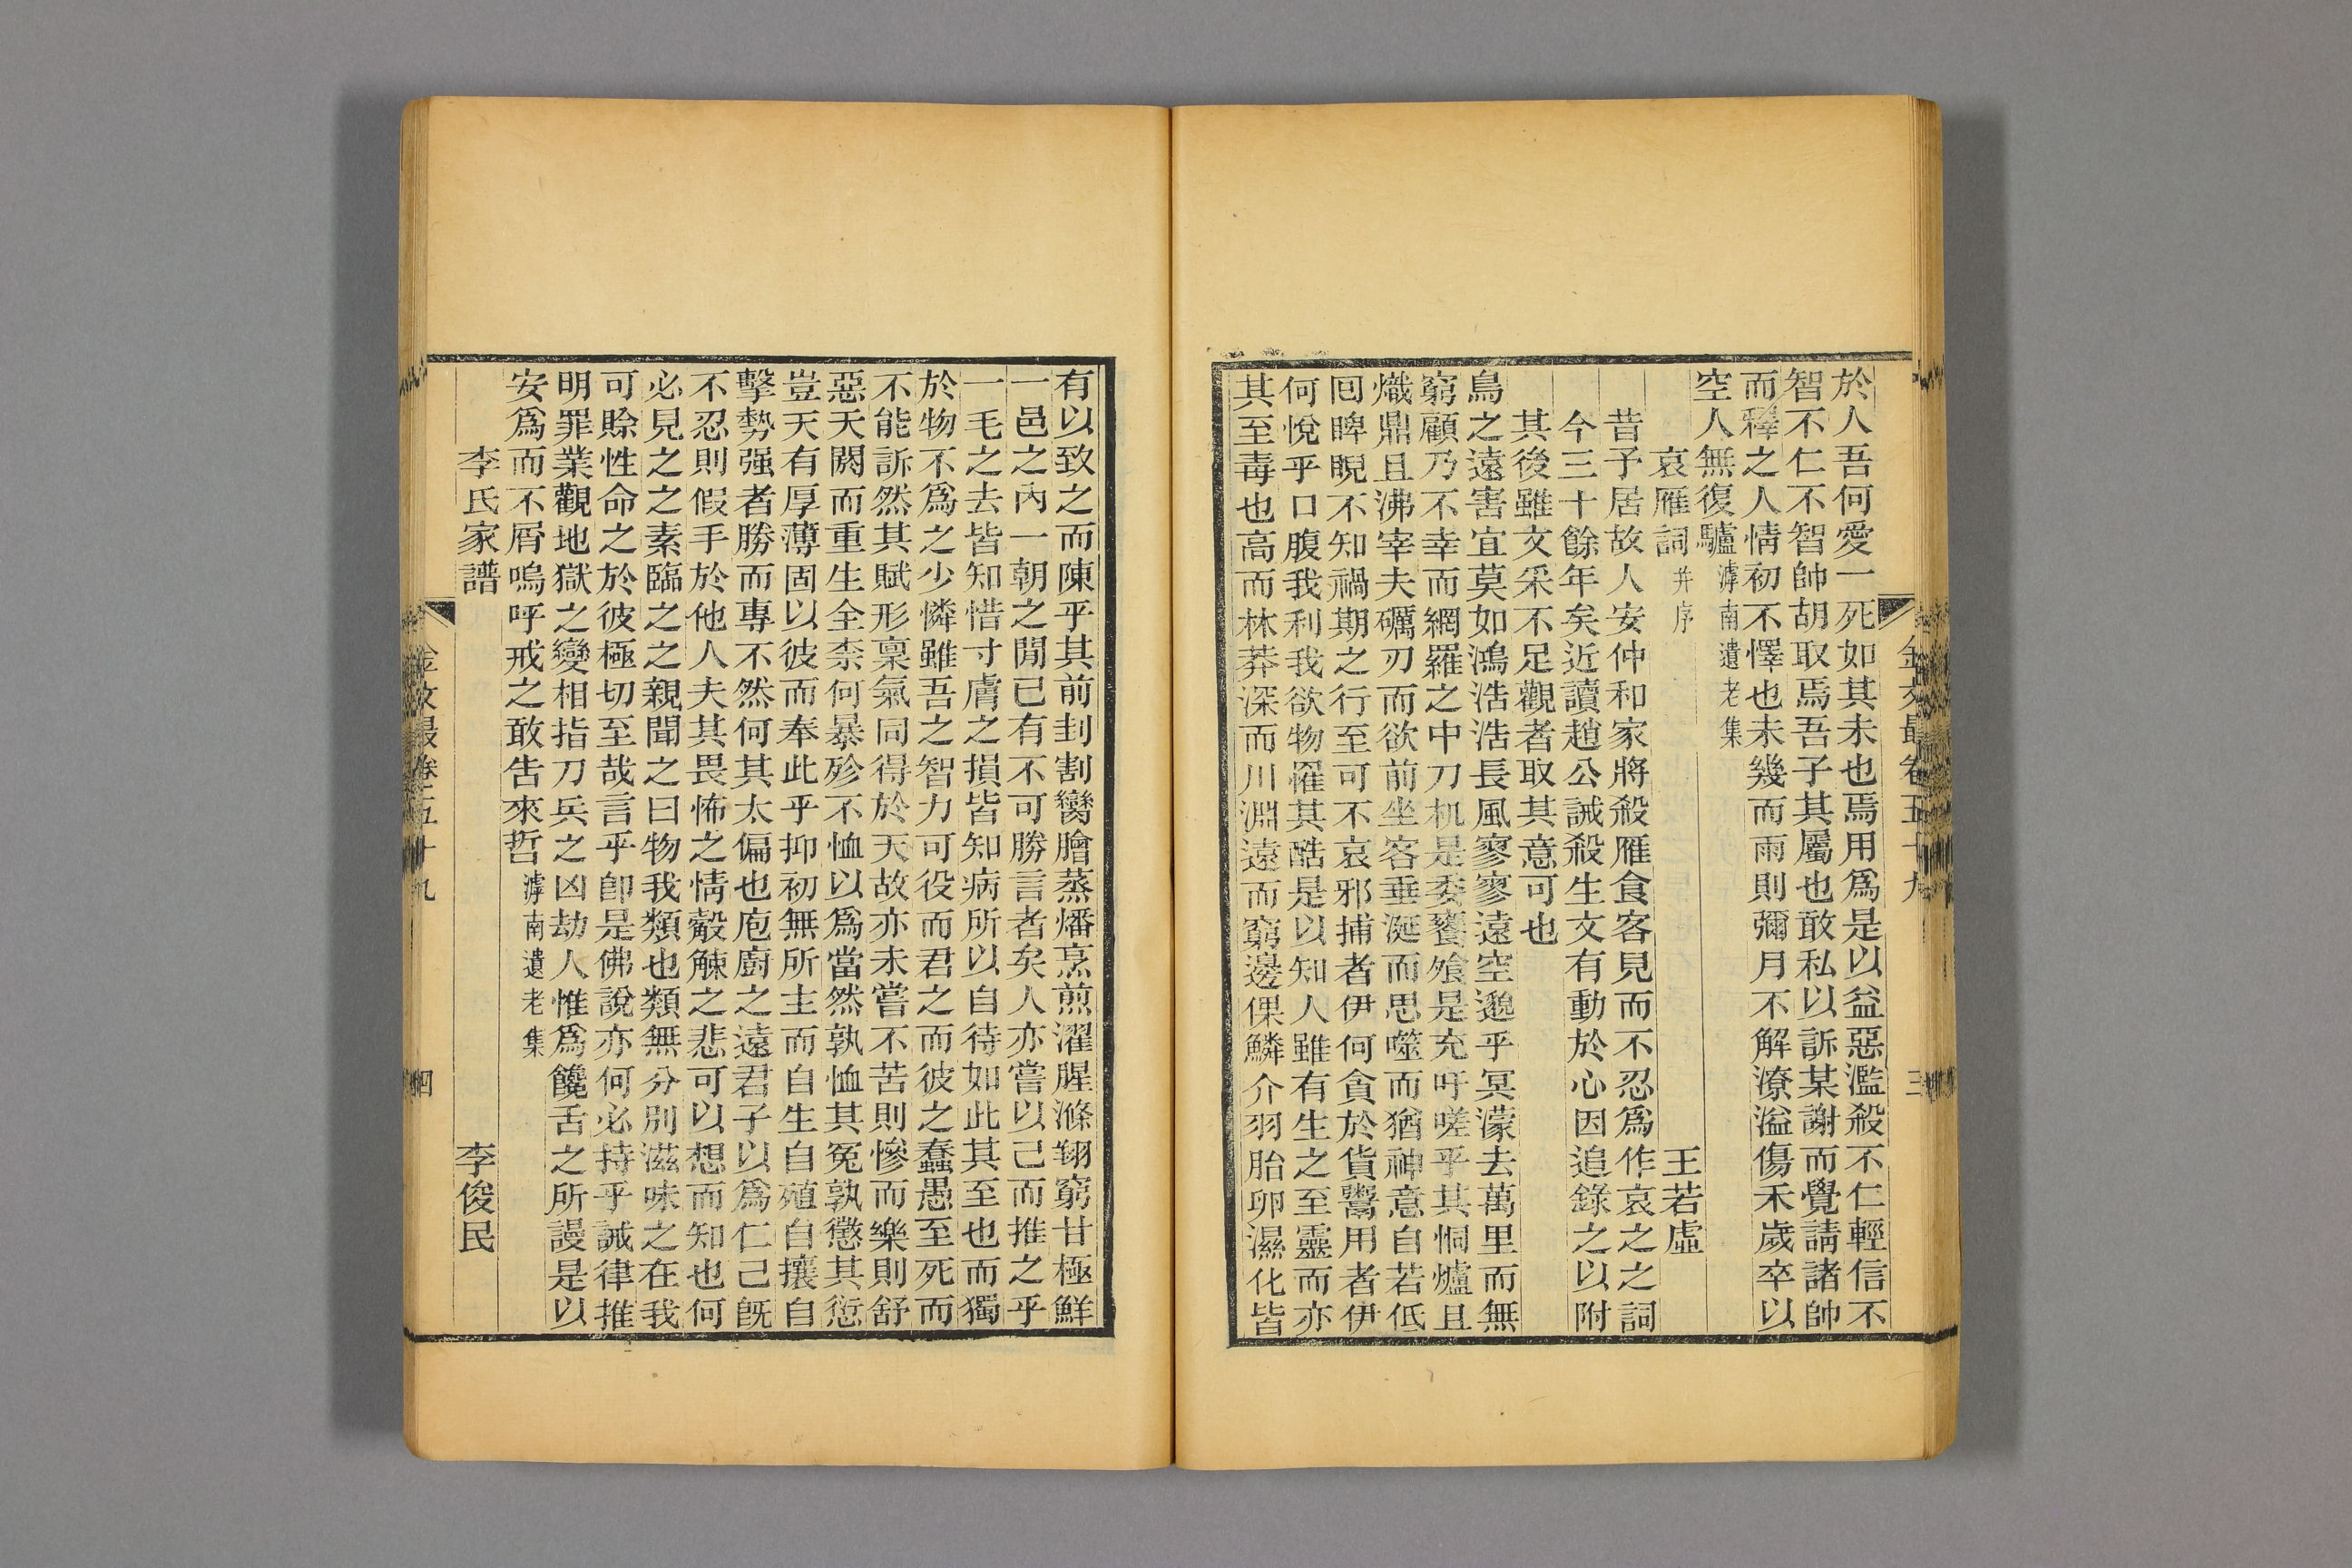 金文最卷五十九
三
於人吾何愛一死如其未也焉用爲是以益惡濫殺不仁輕信不
智不仁不智帥胡取焉吾子其屬也敢私以訴某謝而覺請諸帥
而釋之人情初不懌也未幾而雨則彌月不解潦溢傷禾歲卒以
空人無復驢滹南遺老集
哀雁詞并序 王若虛
昔予居故人安仲和家將殺雁食客見而不忍爲作哀之之詞
今三十餘年矣近讀趙公誡殺生文有動於心因追錄之以附
其後雖文采不足觀者取其意可也
鳥之遠害宜莫如鴻浩浩長風寥寥遠空邈乎冥濛去萬里而無
窮顧乃不幸而網羅之中刀机是委饔飧是充吁嗟乎其恫爐且
熾鼎且沸宰夫礪刃而欲前坐客垂涎而思噬而猶神意自若低
囘睥睨不知禍期之行至可不哀邪捕者伊何貪於貨鬻用者伊
何悅乎口腹我利我欲物罹其酷是以知人雖有生之至靈而亦
其至毒也高而林莽深而川淵遠而窮邊倮鱗介羽胎卵濕化皆
有以致之而陳乎其前刲割臠膾蒸燔烹煎濯腥滌翈窮甘極鮮
一邑之內一朝之閒已有不可勝言者矣人亦嘗以己而推之乎
一毛之去皆知惜寸膚之損皆知病所以自待如此其至也而獨
於物不爲之少憐雖吾之智力可役而君之而彼之蠢愚至死而
不能訴然其賦形稟氣同得於天故亦未嘗不苦則慘而樂則舒
惡夭閼而重生全柰何暴殄不恤以爲當然孰恤其冤孰懲其愆
豈天有厚薄固以彼而奉此乎抑初無所主而自生自殖自攘自
擊勢强者勝而專不然何其太偏也庖廚之遠君子以爲仁己旣
不忍則假手於他人夫其畏怖之情觳觫之悲可以想而知也何
必見之之素臨之之親聞之曰物我類也類無分別滋味之在我
可賒性命之於彼極切至哉言乎卽是佛說亦何必持乎誡律推
明罪業觀地獄之變相指刀兵之凶劫人惟爲饞舌之所謾是以
安爲而不屑嗚呼戒之敢告來哲滹南遺老集
李氏家譜 李俊民
金文最卷五十九
四